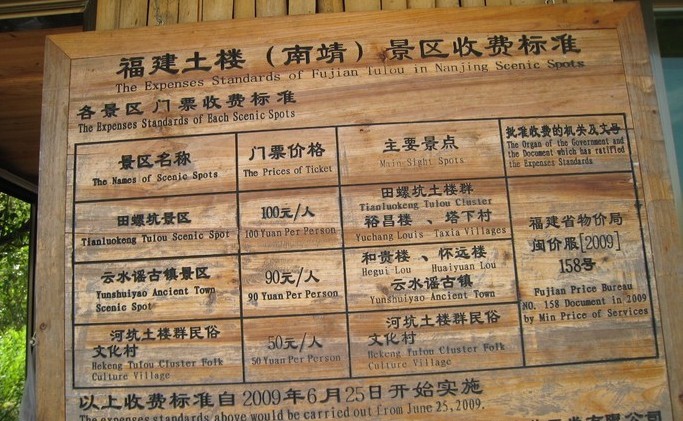 福建土楼（南靖）景区收费标准
The Expenses Standards of Fujian Tulou in Nanjing Scenic Spots
各景区门票收费标准
The Expenses Standards of Each Scenic Spots
景区名称
The Names of Scenic Spots
门票价格
The Prices of Ticket
主要景点
Main Sight Spots
批准收费的机关及文号
The Organ of the Government and
the Document which has ratified
the Expenses Standards
田螺坑景区
Tianluokeng Tulou Scenic Spot
100元/人
100 Yuan Per Person
田螺坑土楼群
Tianluokeng Tulou Cluster
裕昌楼、塔下村
Yuchang Louis Taxia Villages
云水谣古镇景区
Yunshuiyao Ancient Town
Scenic Spot
90元/人
90 Yuan Per Person
和贵楼、怀远楼
Hegui Lou Huaiyuan Lou
云水谣古镇
Yunshuiyao Ancient Town
河坑土楼群民俗
文化村
Hekeng Tulou Cluster Folk
Culture Village
50元/人
50 Yuan Per Person
河坑土楼群民俗
文化村
Hekeng Tulou Cluster Folk
Culture Village
福建省物价局
闽价服[2009]
158号
Fujian Price Bureau
NO. 158 Document in 2009
by Min Price of Services
以上收费标准自2009年6月25日开始实施
The expenses standards above would be carried out from June 25, 2009.